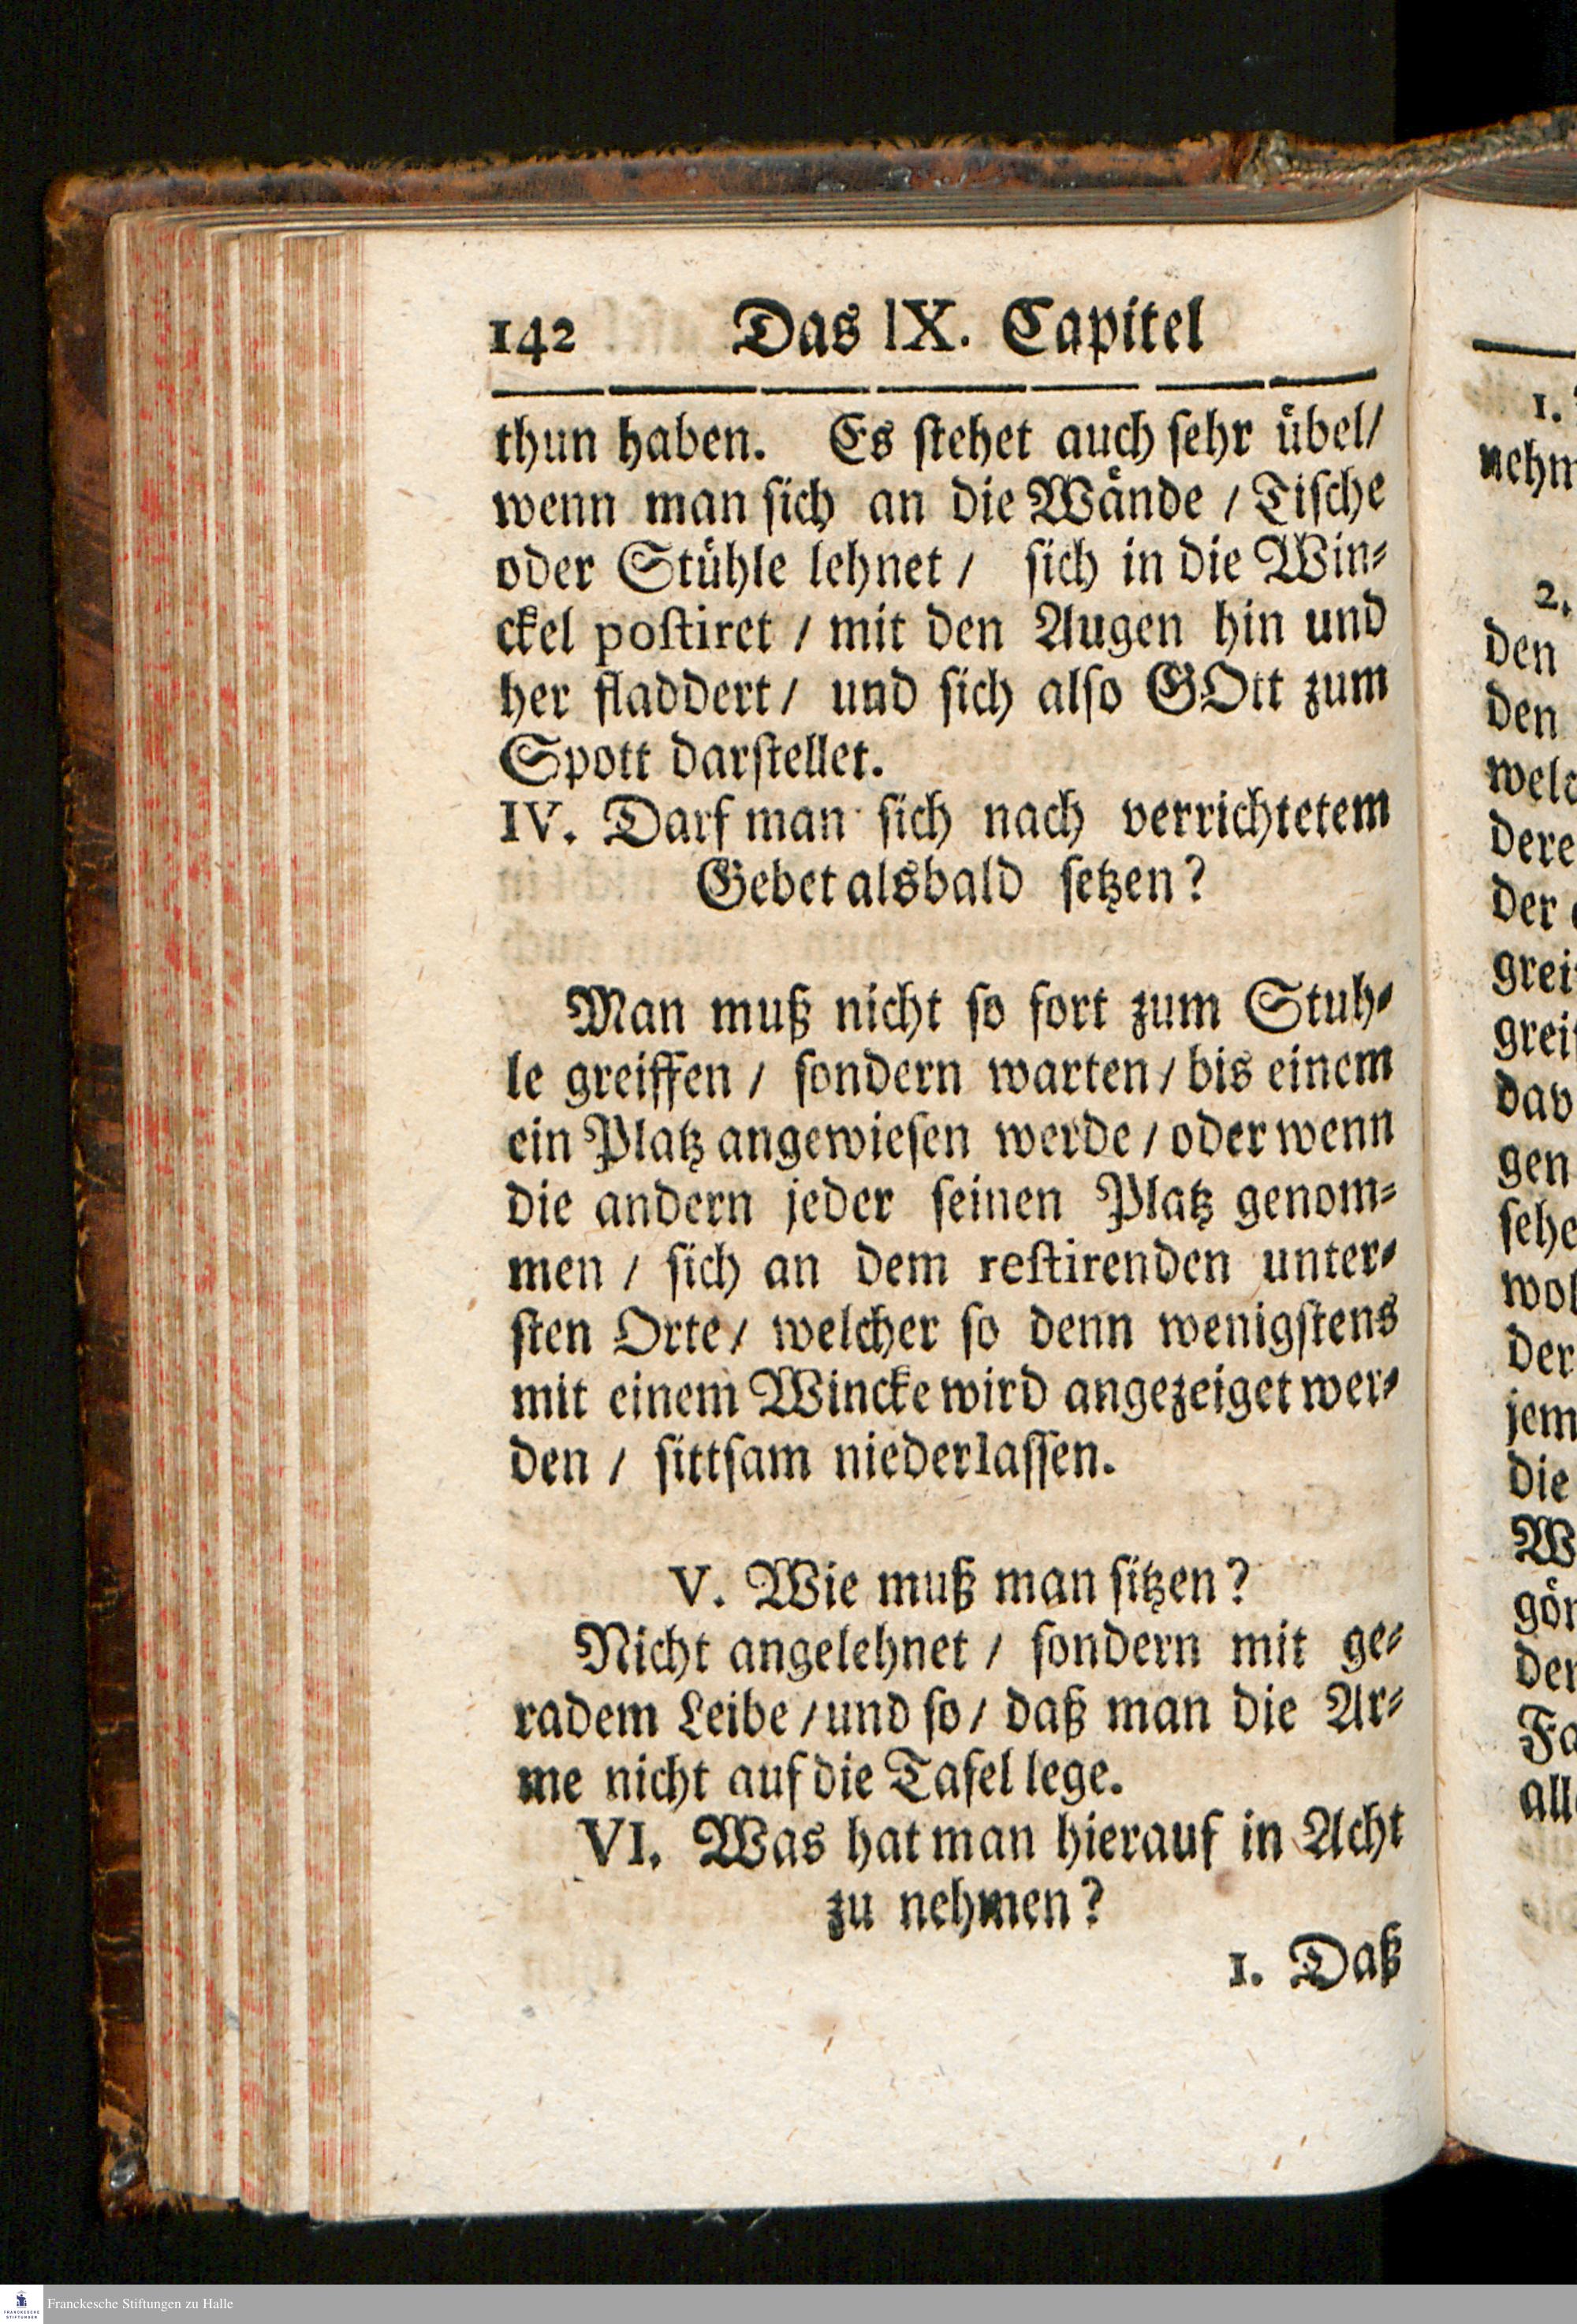 142 Das IX. Capitel
thun haben. Es stehet auch sehr übel/
wenn man sich an die Wände / Tische
oder Stühle lehnet / sich in die Win-
ckel postiret / mit den Augen hin und
her fladdert / und sich also GOtt zum
Spott darstellet.
IV. Darf man sich nach verrichtetem
Gebet alsbald setzen?
Man muß nicht so fort zum Stuh-
le greiffen / sondern warten / bis einem
ein Platz angewiesen werde / oder wenn
die andern jeder seinen Platz genom-
men / sich an dem restirenden unter-
sten Orte / welcher so denn wenigstens
mit einem Wincke wird angezeiget wer-
den / sittsam niederlassen.
V. Wie muß man sitzen?
Nicht angelehnet / sondern mit ge-
radem Leibe / und so / daß man die Ar-
me nicht auf die Tafel lege.
VI. Was hat man hierauf in Acht
zu nehmen?
1. Daß
1.
nehm
2.
den
den
welc
dere
der
grei
grei
dav
gen
sehe
wol
der
jem
die
W
gön
den
Fa
all
FRANCKESCHE
STIFTUNGEN
Franckesche Stiftungen zu Halle